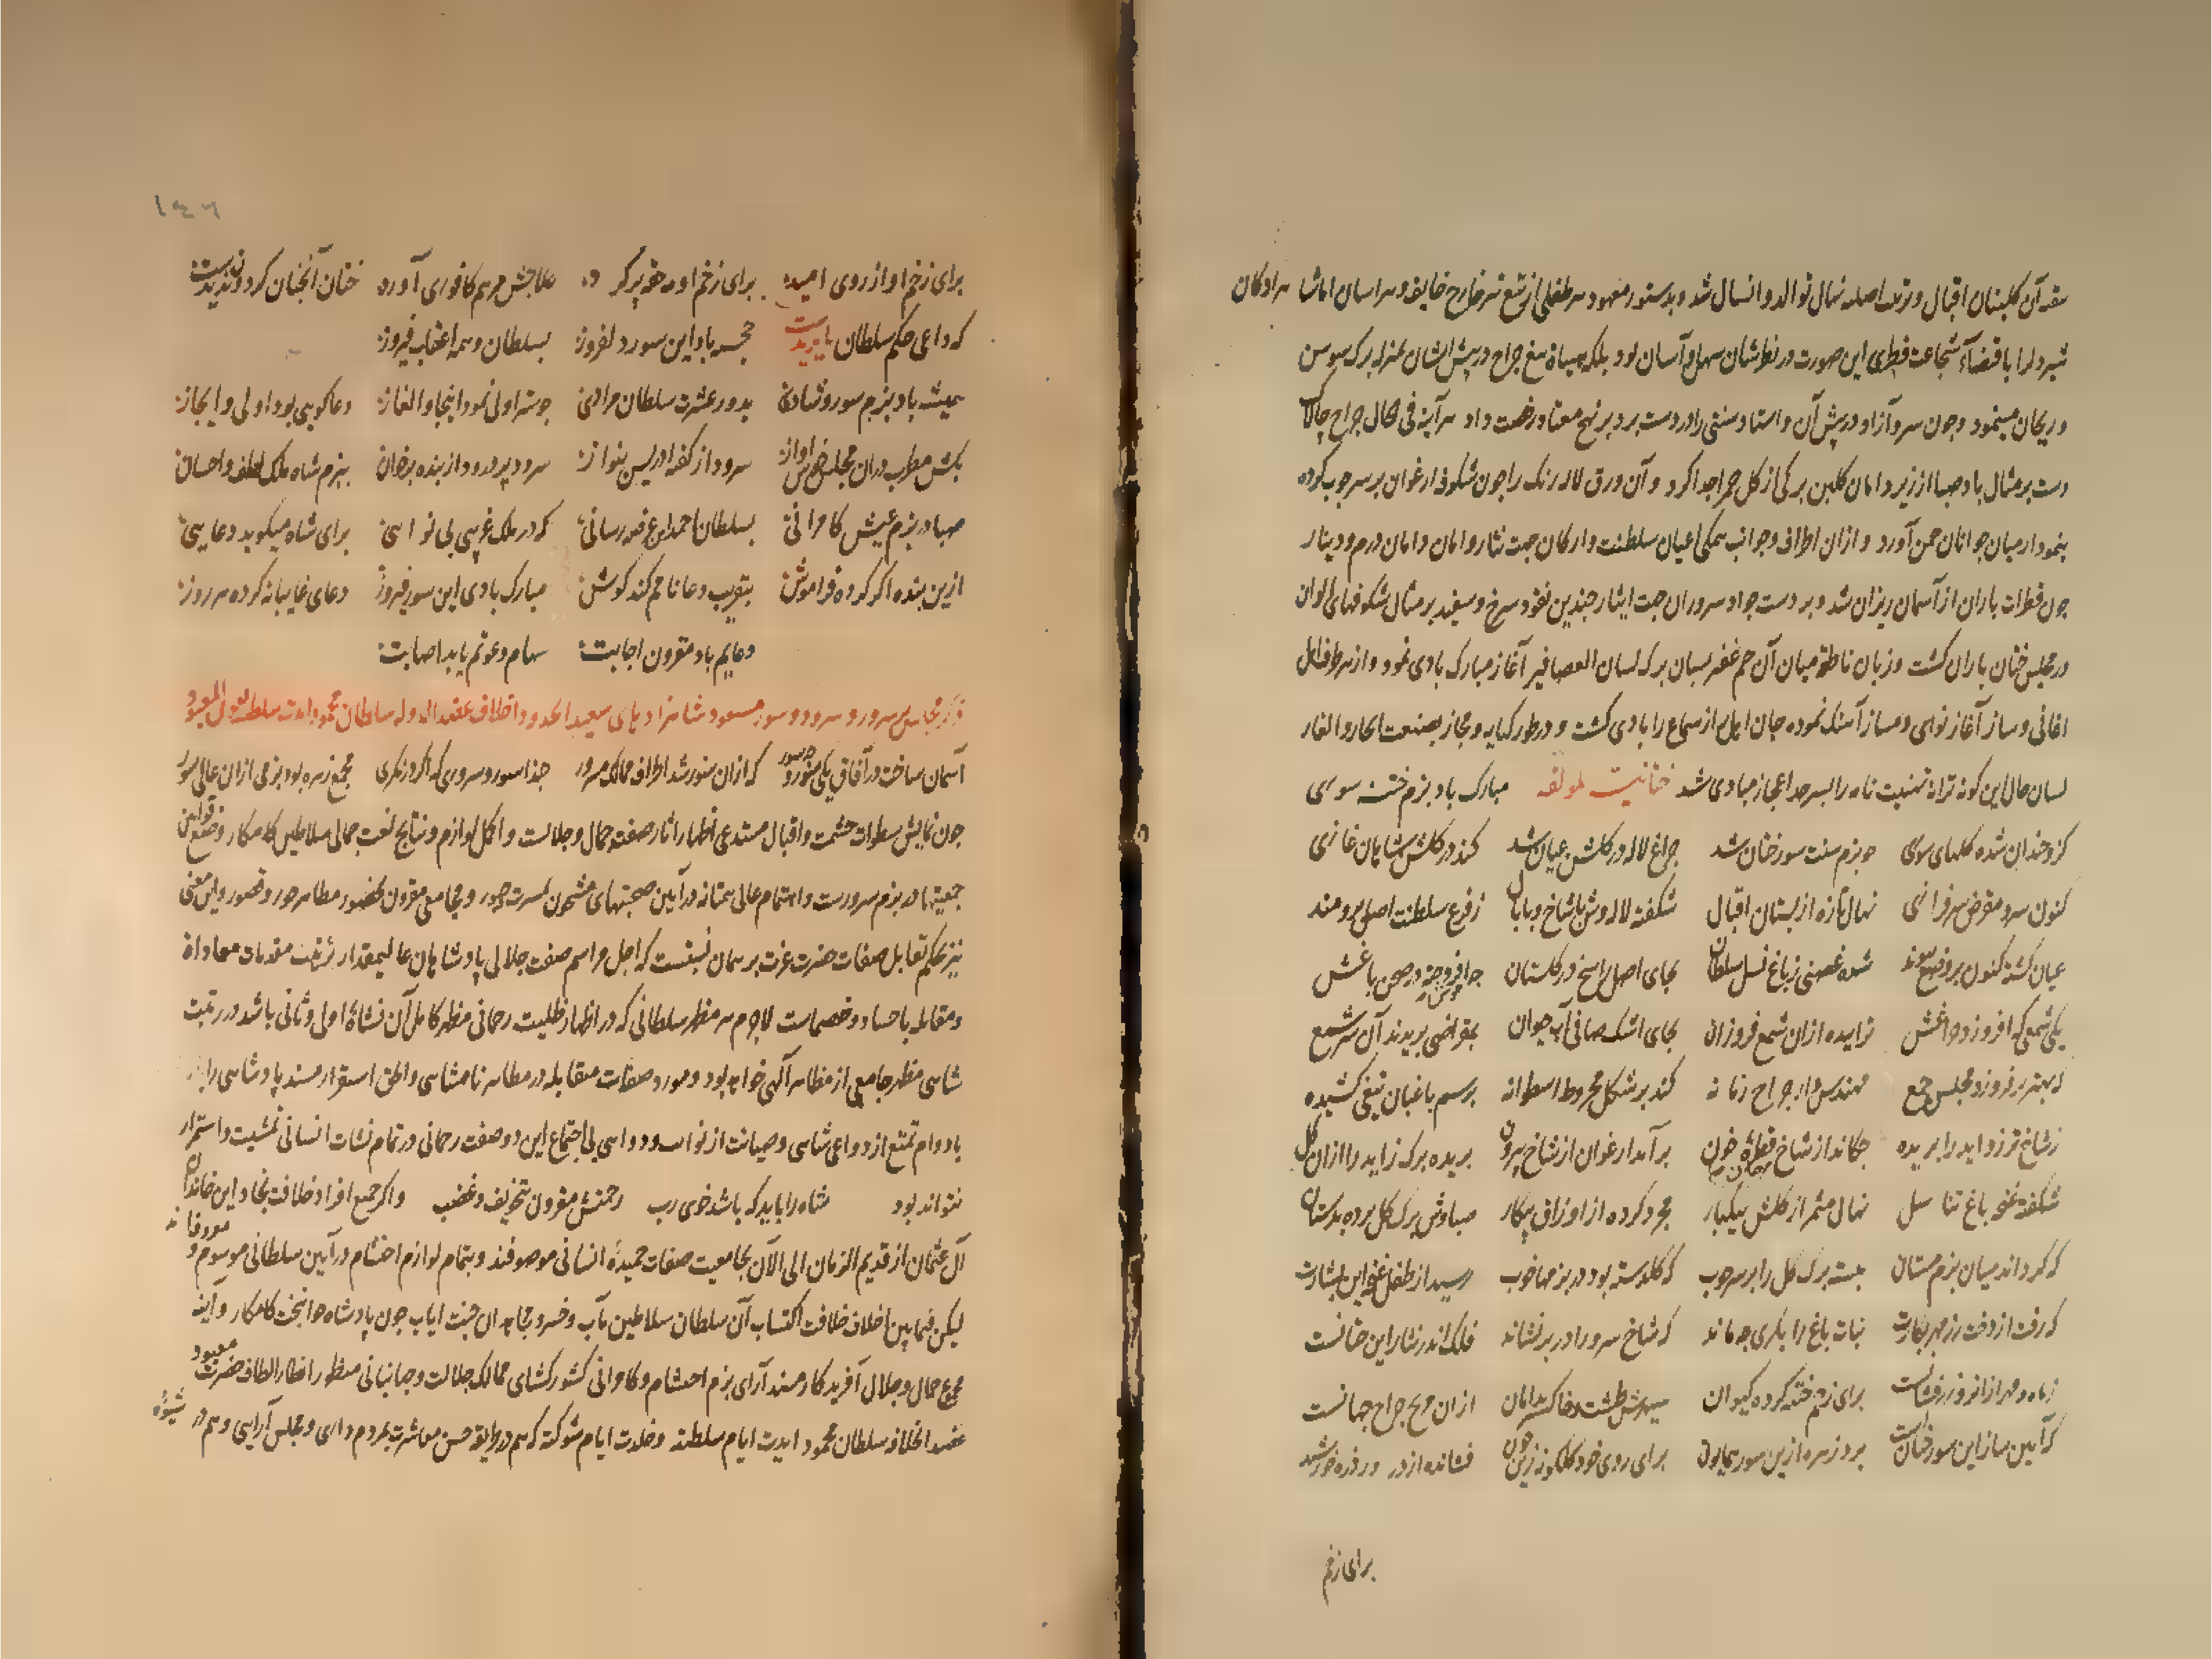 شیردلرا باقتضاء شجاعت فطری این صورت در نظر شان سهل و آسان بود بلکه میاه تیغ جراح در پیش ایشان بمنزله برک سوسن
و ریحان مینمود و چون سرو آزاد در پیش آن استاد سنتی را در دست برد بر نهج معتاد رخصت داد هر آینه فی الحال جراح چالاک
دست بر مثال باد صبا از زیر دامان کلبن برکی از کل حمرا جدا کرد و آن ورق لاله رنک را چون شکوفه ارغوان بر سر چوب کرده
بنمودار میان جوانان چمن آورد و ازان اطراف و جوانب همکی اعیان سلطنت و ارکان جهت نثار دامان دامان درم و دینار
چون قطرات باران از آسمان ریزان شد و بر دست جواد سروران جهت ایثار چندین نقود سرخ و سفید بر مثال شکوفهای الوان
در مجلس ختان باران کشت و زبان ناطقه میان آن جم غفیر بسان برک لسان العصافیر آغاز مبارک بادی نمود و از هر طرف اهل
اغانی و ساز آغاز نوای دمساز آهنک نموده
لسان حال این کونه ترانه تهنیت نامه را بسر حد اعجاز مبادی شد ختانیت لمولفه مبارک باد بزم ختنه سوری
کزو خندان شده کلهای سوری چو بزم سنت سور ختان شد چراغ لاله در کلشن عیان شد کند در کلشن شاهان غازی
کنون سرو مقرض سرفرازی نهال تازه از بستان اقبال شکفته لاله وش با شاخ و با بال ز فرع سلطنت اصل برومند
عیان کشته کنون بر وضع پیوند شده غصنی ز باغ نسل سلطان بجای اصل راسخ در کلستان در صحن باغش
یکی شمعی که افروزد چراغش تراییده ازان شمع فروزان بجای اشک صافی آب حیوان بمقراضی بریدند آن سر شمع
که بهتر بر فروزد مجلس جمع مهندس وار جراح زمانه کند بر شکل مخروط اسطوانه برسم باغبان تیغی کشیده
ز شاخ تر زواید را بریده چکاند از شاخ قطره خون بر آمد ارغوان از شاخ بیرون بریده برک زاید را ازان کل
شکفته غنچه باغ تناسل نهال مثمر از کلشن بیکبار مجرد کرده از اوراق بیکار صباوش برک کل برده بدستان
که کرداند میان بزم مستان ببسته برک کل را بر سر چوب که کلدسته بود در بزمها خوب رسید از طفل غنچه این بشارت
که رفت از دخت رز مهر بکارت نبات باغ را بکری چه ماند که شاخ سرو را در بر نشاند فلک اندر نثار این ختانست
برای زخم ختنه کرده کیوان سپهرش طشت و خاکستر بدامان ازان مریخ جراح جهانست
که آیین ساز این سور ختانست برو زهره ازین سور همایون برای روی خود کلکونه زین خون
برای زخم
١٤٦
برای زخم او از روی امید برای زخم او مه حقه پر کرده علاجش مرهم کافوری آورده ختان آنچنان کرد
که داعی حکم سلطان خجسته باد این سور دلفروز بسلطان و همه اعقاب فیروز
همیشه باد بزم سور و شادی بدور عشرت سلطان مرادی چو ستر اولی نمود اینجا و الغاز دعاکویی بود اولی و ایجاز
بکش مطرب دران مجلس خوش آواز سرود از کفته ادریس بنواز سرود پر درود از بنده برخوان ببزم شاه ملک لطف و احسان
صبا در بزم عیش کامرانی بسلطان احمد این عرضه رسانی که در ملک غریبی بی نوایی برای شاه میکوید دعایی
ازین بنده اکر کرده فراموش بتقریب دعا نامم کند کوش مبارک بادی این سور فیروز دعای غایبانه کرده هر روز
دعایم باد مقرون اجابت سهام دعوتم یابد اصابت
ذکر مجالس پر سرور و سرود و سور مسعود شاهزادهای سعید الجدود اخلاف عضد الدوله سلطان محمود
آسمان ساخت در آفاق یکی سور و سرور که ازان سور شد اطراف ممالک مسرور حبذا سور و سروری که اکر در نکری مجمع زهره بود بزمی ازان عالی سور
چون نمایش سطوات حشمت و اقبال مستدعی اظهار آثار صفت جمال و جلالت و اکمل لوازم و نتایج نعت جمالی سلاطین کامکار وضع قوانین
جمعیتها در بزم سرورست و اهتمام عالی همتانه در آیین صحبتهای مشحون بمسرت و حبور و مجامع مقرون بحضور مظاهر حور و قصور و این معنی
نیز بحکم تقابل صفات حضرت عزت بر همان نسبتست که اجل مراسم صفت جلالی پادشاهان عالیمقدار ترتیب مقدمات معاداة
و مقابله با حساد و خصماست لاجرم هر مظهر سلطانی که در اظهار ظلیت رحمانی مظهر کامل آن نشاة اولی و ثانی باشد در رتبت
شاهی مظهر جامعی از مظاهر آلهی خواهد بود و مورد صفات متقابله در مظاهر نامتناهی و الحق استقرار مسند پادشاهی را
با دوام تمتع از دواعی شاهی و صیانت از نوایب و دواهی بی اجتماع این دو صفت رحمانی در تمام نشات انسانی تمشیت و استمرار
نتواند بود شاه را باید که باشد خوی رب رحمتش مقرون تخویف و غضب و اکر جمیع افراد خلافت نجاد این خاندان
آل عثمان از قدیم الزمان الی الآن بجامعیت صفات حمیده انسانی موصوفند و بتمام لوازم احتشام در آیین سلطانی موسوم و معروف اما
لیکن فیما بین اخلاف خلافت اکتساب آن سلطان سلاطین مآب و خسرو مجاهدان جنت ایاب چون پادشاه جوانبخت کامکار و آینه
مجمع جمال و جلال آفریدکار مسند آرای بزم احتشام و کامرانی کشورکشای ممالک جلالت و جهانبانی منظور انظار الطاف حضرت معبود
عضد الخلافه سلطان محمود ابدت ایام سلطنته و خلدت ایام شوکته که هم در طریقه حسن معاشرت بمردم داری و مجلس آرایی و هم در شیوه